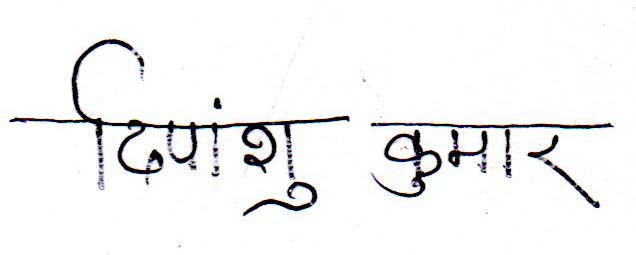 दिपांशु कुमार